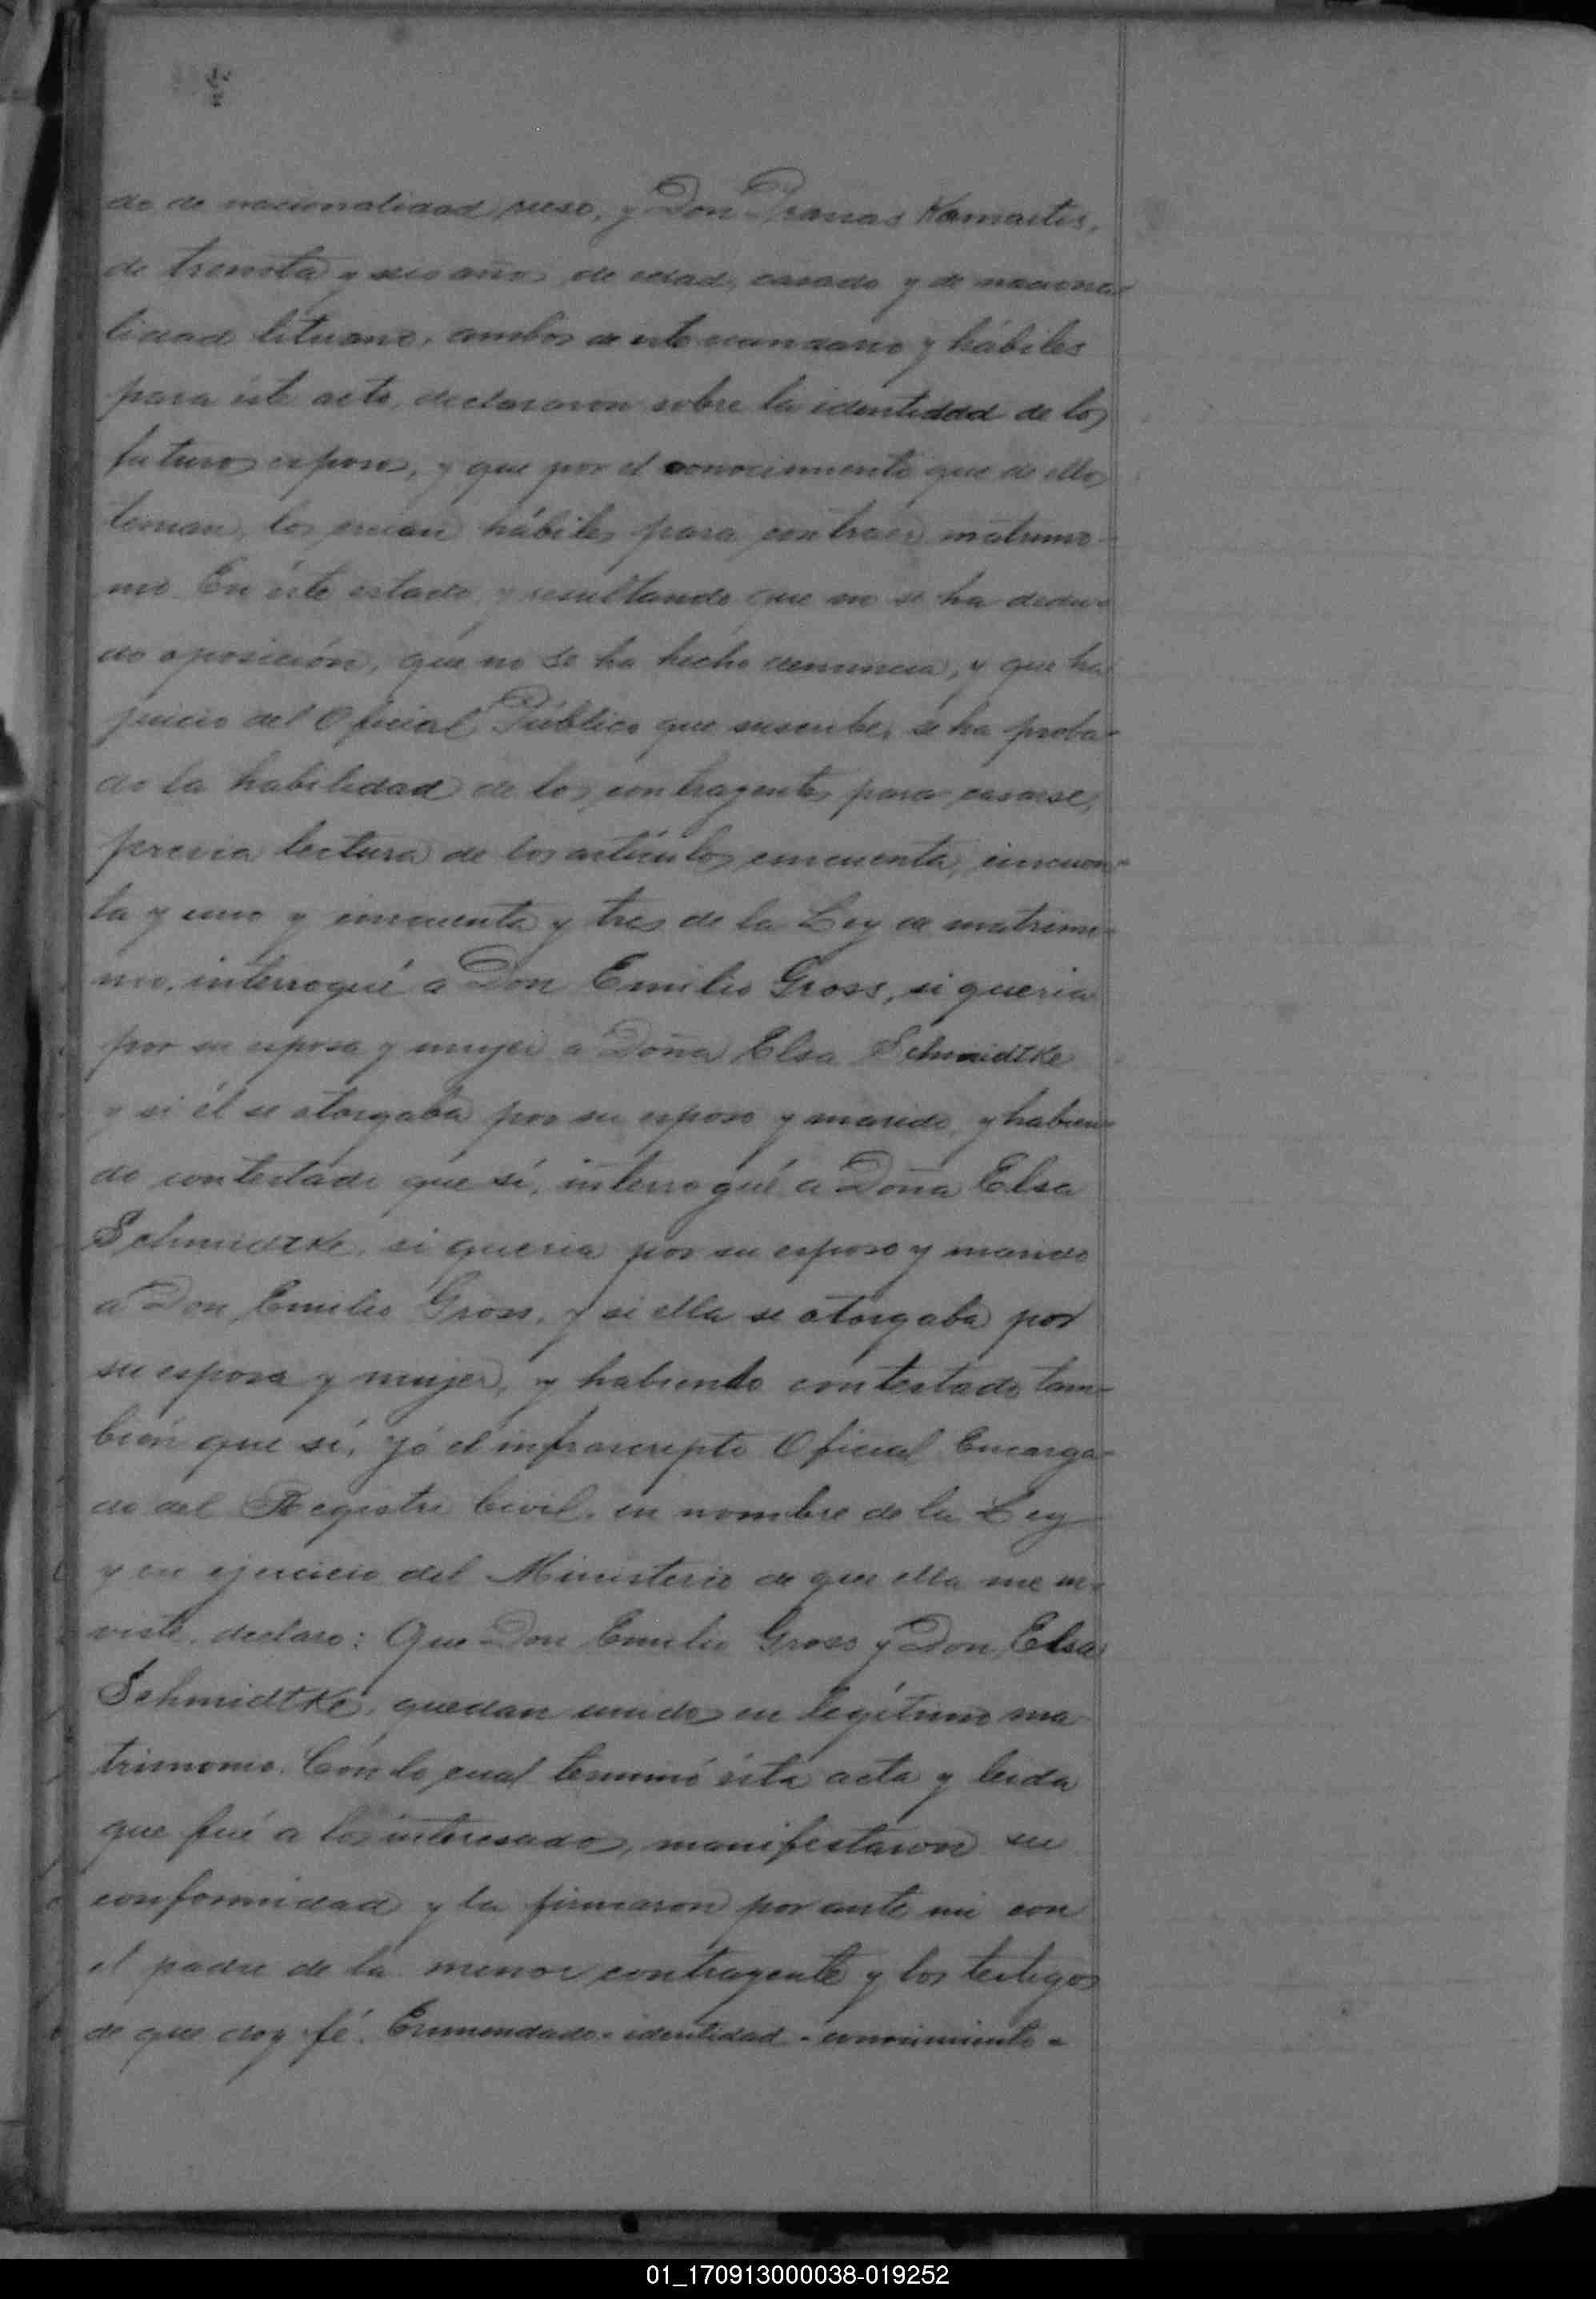 do de nacionalidad ruso, y Don Pranas Kamaites,
de treinta y seis años de edad, casado y de naciona-
lidad lituano, ambos de este vecindario y hábiles
para éste acto, declararon sobre la identidad de los
futuros esposos, y que por el conocimiento que de ellos
tenian, los creian hábiles para contraer matrimo-
nio. En éste estado y resultando que no se ha dedu-
do oposición, que no se ha hecho denuncia, y que ha
juicio del Oficial Público que suscribe, se ha proba-
do la habilidad de los contrayentes para casarse,
previa lectura de los artículos cincuenta, cincuen-
ta y uno y cincuenta y tres de la Ley de matrimo-
nio, interrogué a Don Emilio Gross, si queria
por su esposa y mujer a Doña Elsa Schmidtke
y si él se otorgaba por su esposo y marido, y habien-
do contestado que sí, interrogué a Doña Elsa
Schmidtke, si queria por su esposo y marido
a Don Emilio Gross, y si ella se otorgaba por
su esposa y mujer, y habiendo contestado tam-
bién que sí, yó el infrascripto Oficial Encarga-
do del Registro Civil, en nombre de la Ley
y en ejercicio del Ministerio de que ella me in-
viste, declaro: Que Don Emilio Gross y Don Elsa
Schmidtke, quedan unidos en legítimo ma
trimonio. Con lo cual terminó ésta acta y leida
que fué a los interesados, manifestaron su
conformidad y la firmaron por ante mi con
el padre de la menor contrayente y los testigos
de que doy fé. Enmendado-identidad-conocimiento-
01_170913000038-019252